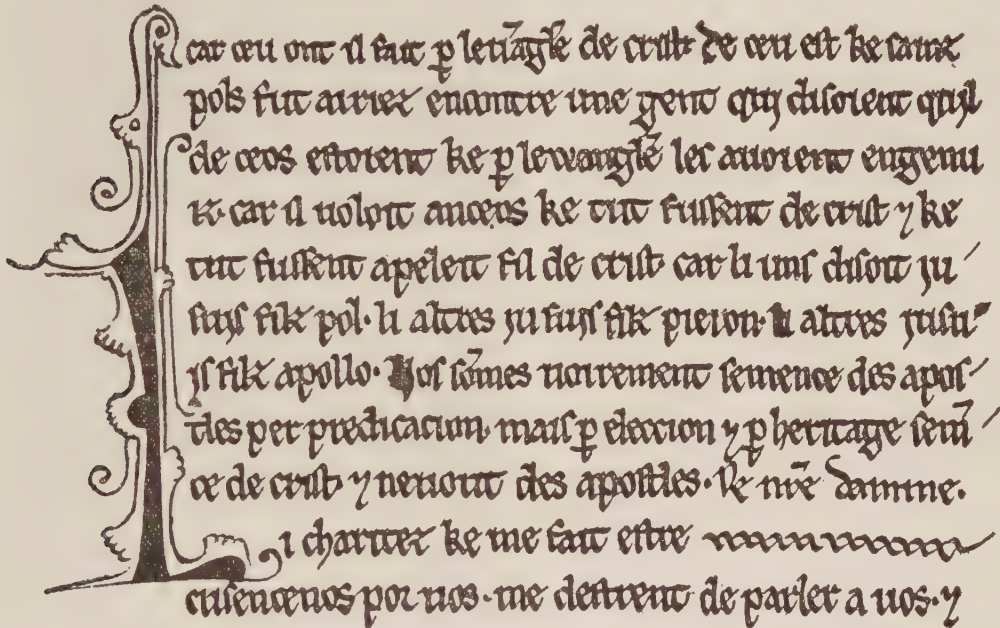 car ceu ont il fait p̱ leuãgle de crist· De ceu est ke sainz
pols fut airiez encontre une gent quj disoient quil
de ceos estoient ke p̱ lewangl̄e les auoient engenu
iz· car il uoloit anceos ke tut fussent de crist ⁊ ke
tut fussent apeleit fil de crist· car li uns disoit iu
suys filz pol· li altres iu suys filz pieron· li altres iusu
is filz apollo· Nos sõmes uoirement semence des apos
tles per predicacium· mais p̱ eleccion ⁊ p̱ heritage sem̄
ce de crist· ⁊ neuout des apostles· Ke nr̄e damme·
i charitez ke me fait estre
cusencenos por uos· me destrent de parler a uos· ⁊